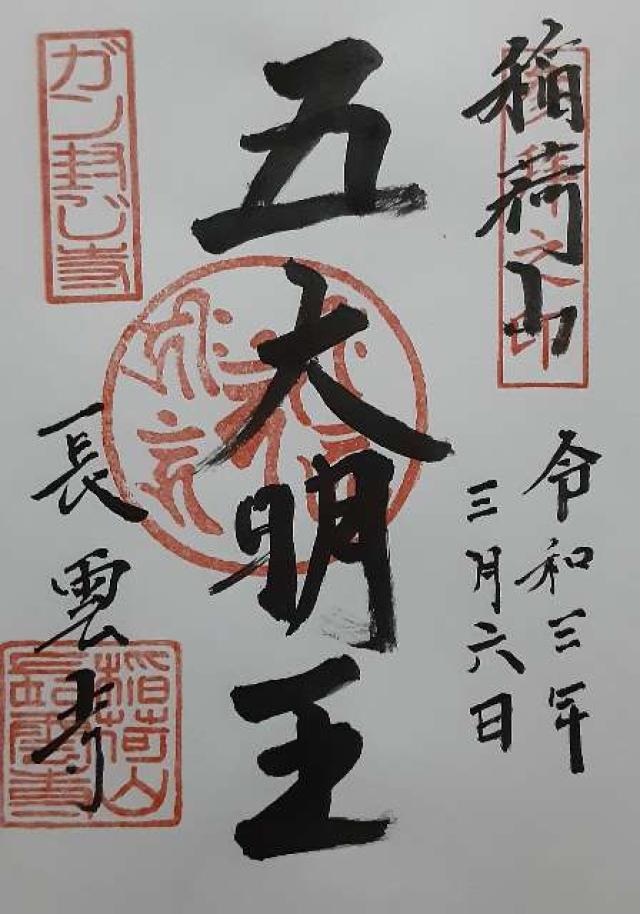 稲荷山
令和三年
三月六日
五大明王
ガン封じ寺
長雲寺
稲荷山
長雲寺